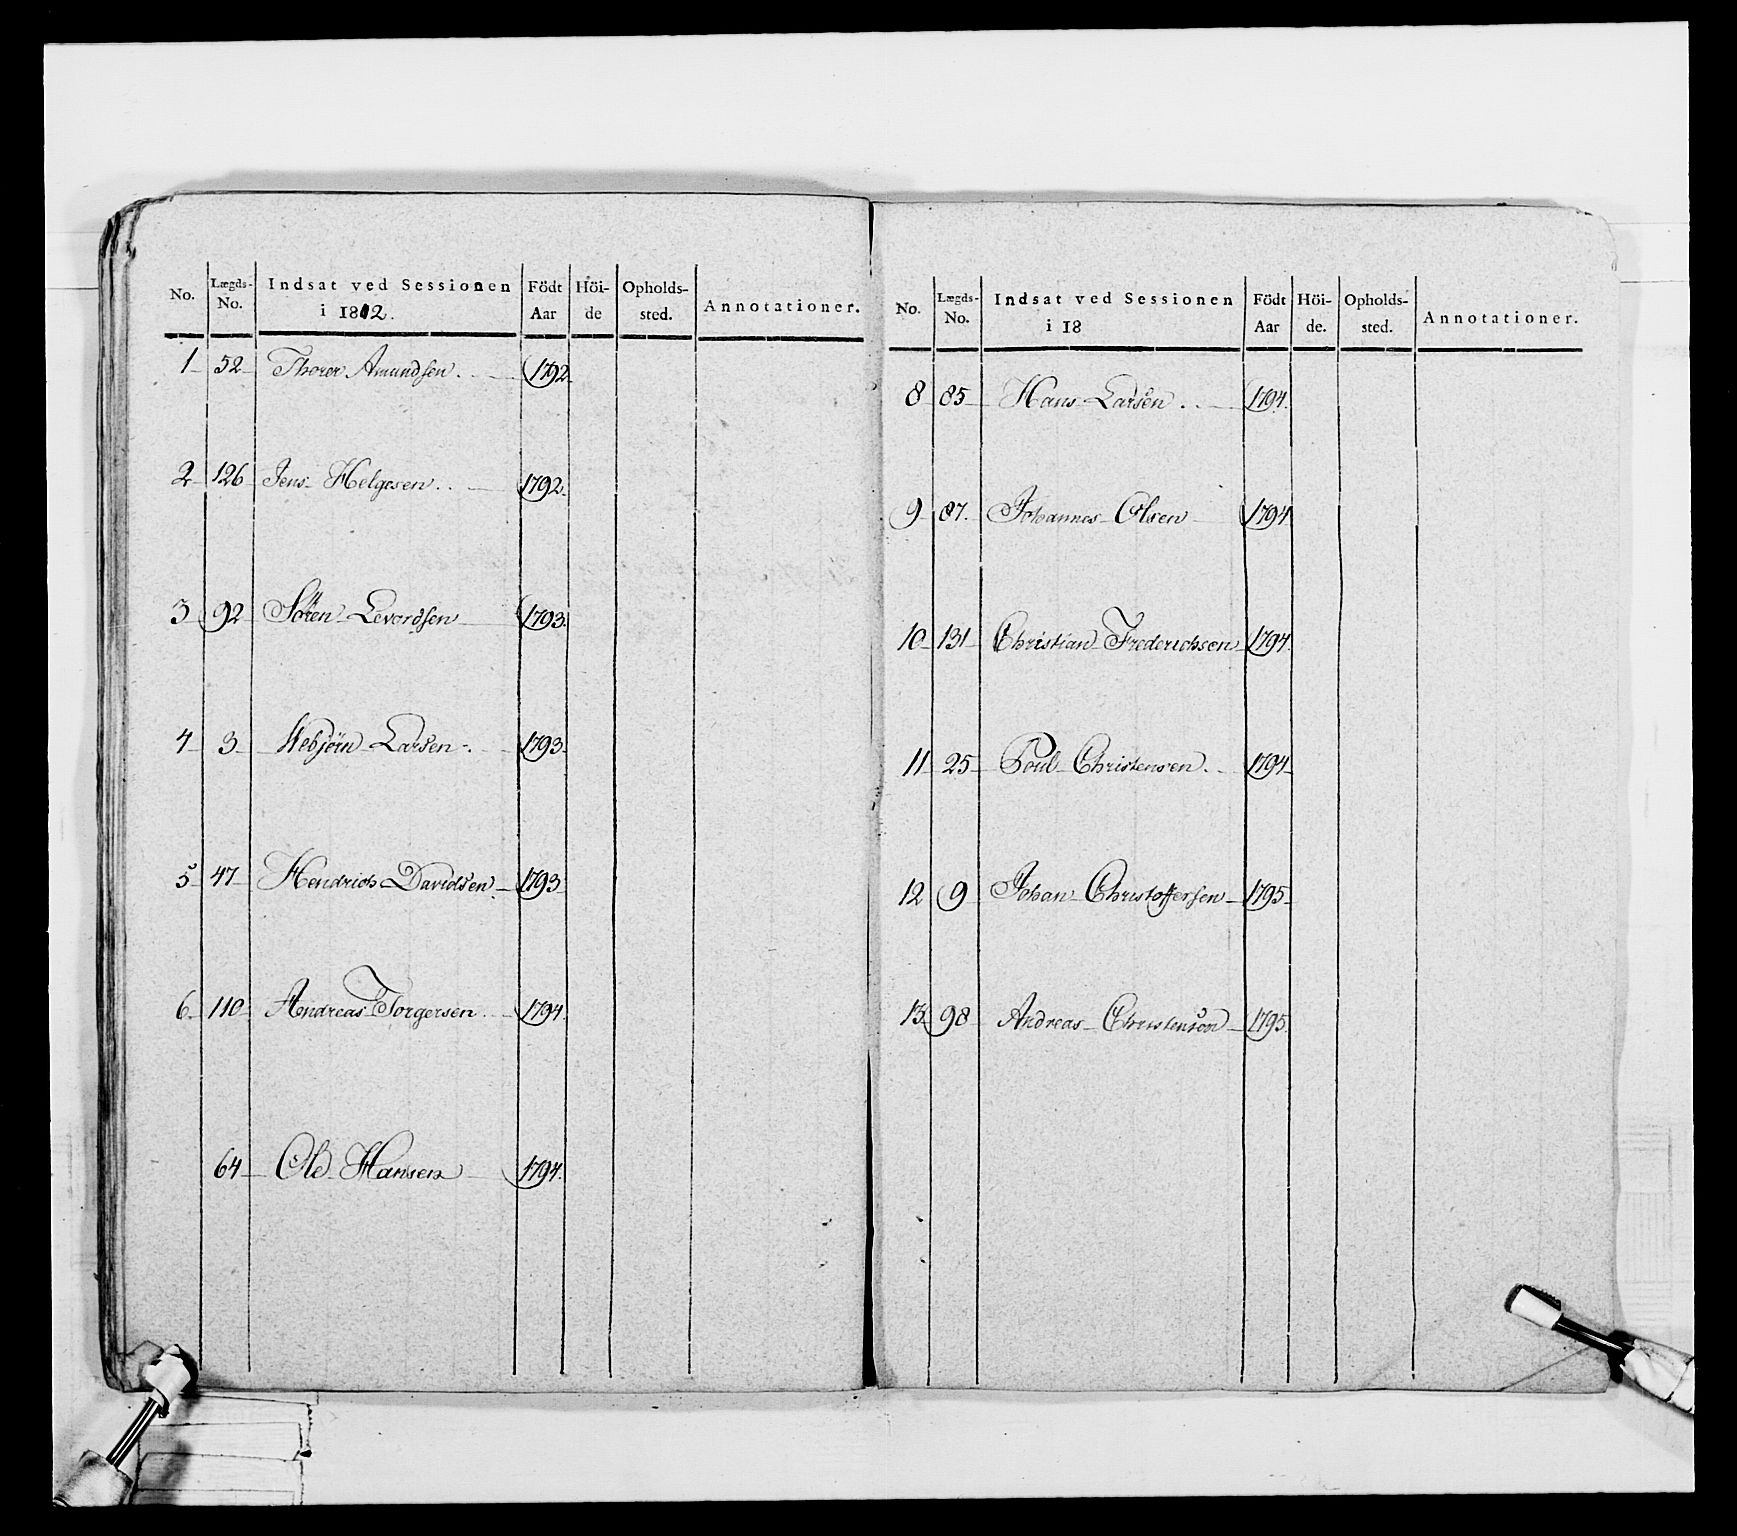 No. Lægds-No. Indsat ved Sessionen i 1812. Födt Aar Höi-de Opholds-sted. Annotationer.
1 52 Thorer Amundsen. 1792
2 126 Jens Helgesen. 1792
3 92 Sören Levordsen 1793.
4 3 Webjörn Larsen. 1793
5 47 Hendrich Davidsen 1793
6 110 Andreas Torgersen. 1794.
64 Ole Hansen 1794.
No. Lægds-No. Indsat ved Sessionen i 18 Födt Aar Höi-de. Opholds-sted. Annotationer.
8 85 Hans Larsen. 1794.
9 87. Johannes Olsen 1794
10 131 Christian Frederichsen 1794.
11 25 Poul Christensen. 1794
12 9 Johan Christoffersen 1795
13 98 Andreas Christensen 1795.